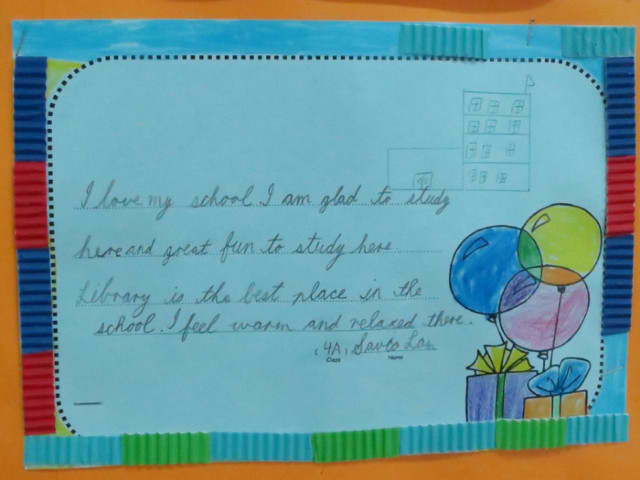 I love my school. I am glad to study
here and great fun to study here.
Library is the best place in the
school. I feel warm and relaxed there.
4A, Savio Lau
Class Name